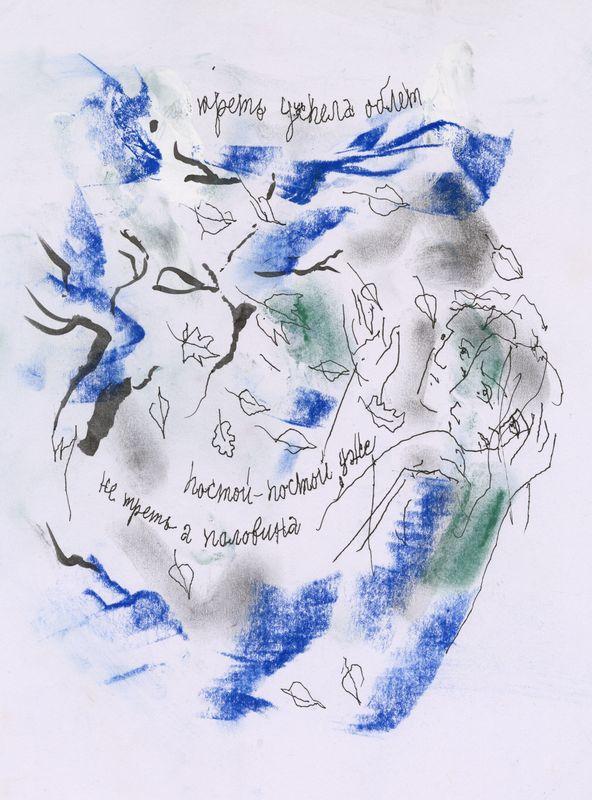 треть успела облет
постой-постой уже
не треть а половина